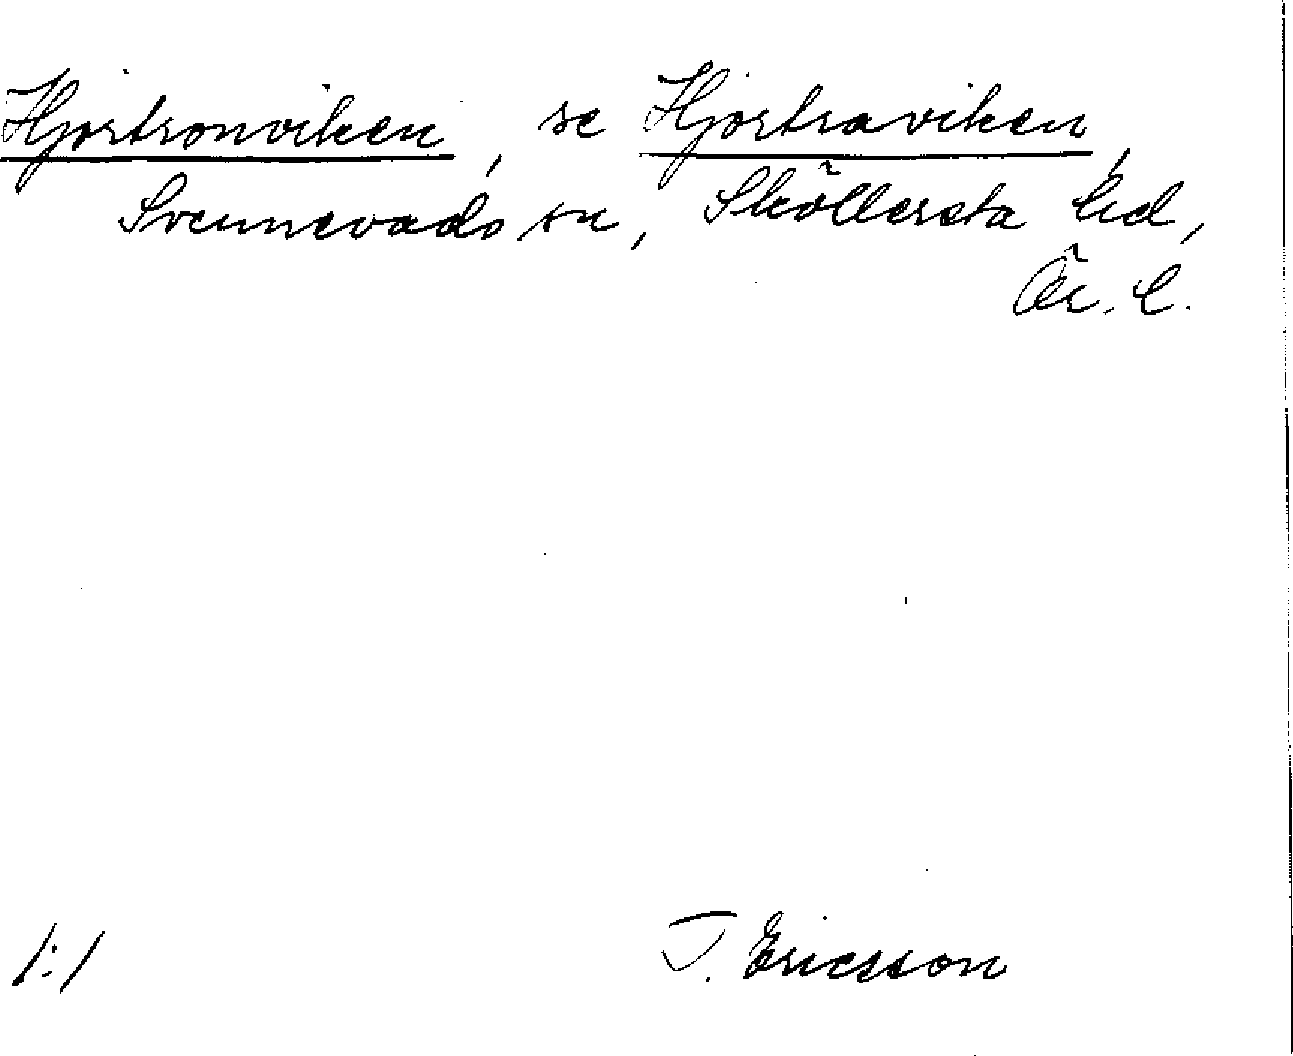 Hjortronviken, se Hjortraviken,
Svennevads sn, Sköllersta hd,
Ör. l.
1:1
T. Ericsson